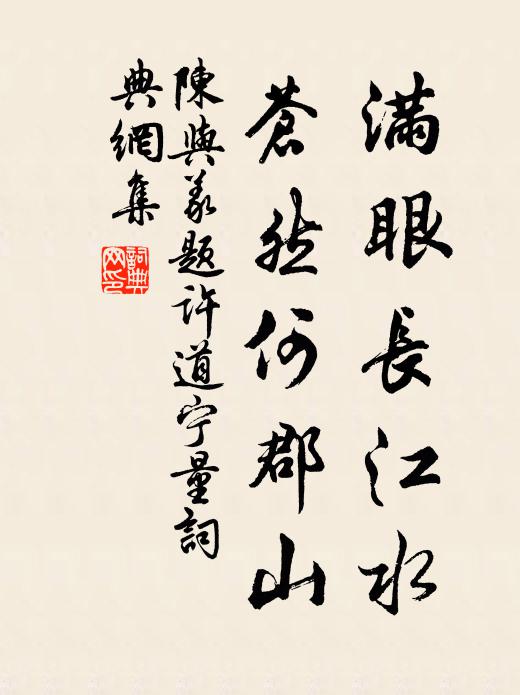 滿眼長江水
蒼然何郡山
陳與義題許道宁量詞
典網集
詞典網印